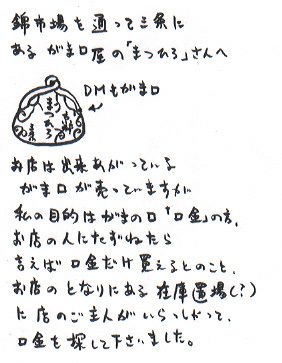 錦市場を通って三条に
ある がま口屋の「まつひろ」さんへ
DMもがま口
まつひろ
お店は出来あがっている
がま口が売っていますが
私の目的はがまの口「口金」の方。
お店の人にたずねたら
言えば口金だけ買えるとのこと。
お店のとなりにある在庫置場(?)
に店のご主人がいらっしゃって、
口金を探して下さいました。